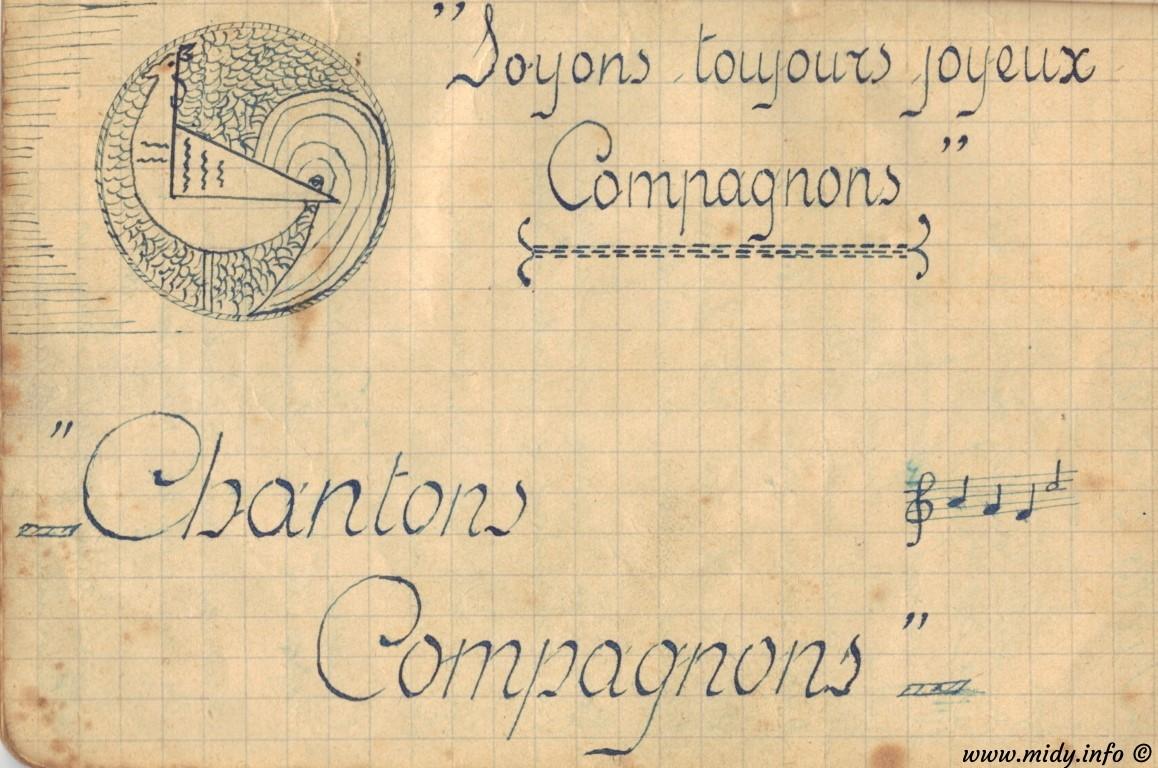 "Soyons toujours joyeux
Compagnons"
"Chantons
Compagnons"
www.midy.info ©